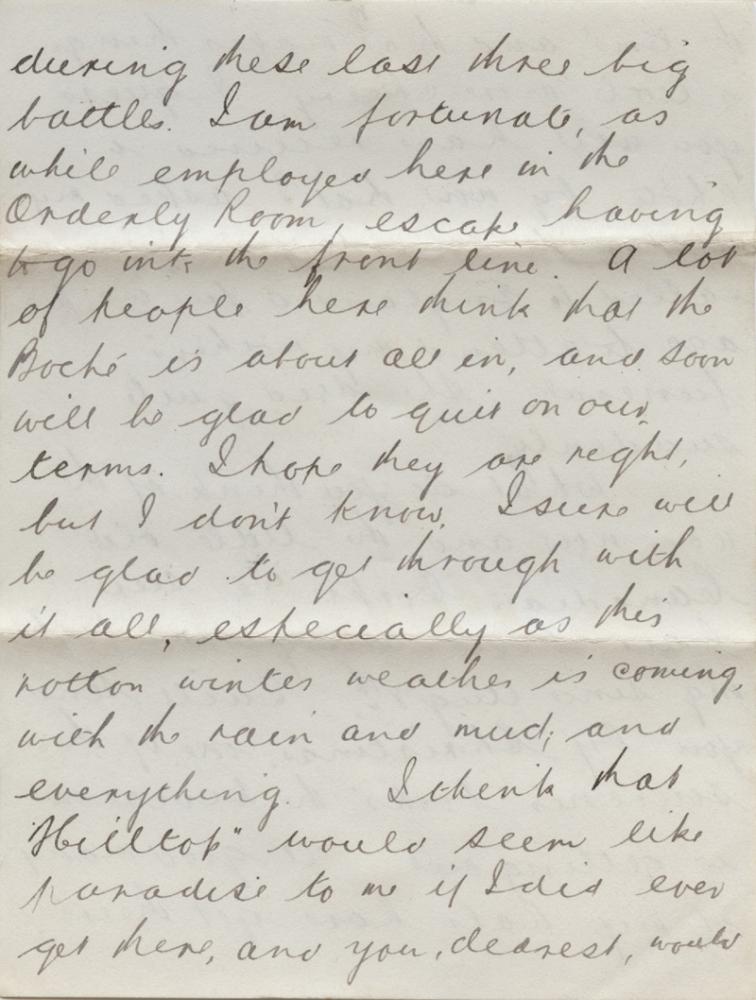 during these last three big
battles. I am fortunate, as
while employed here in the
Orderly Room, escape having
to go into the front line. A lot
of people here think that the
Boché is about all in, and soon
will be glad to quit on our
terms. I hope they are right,
but I don't know. I sure will
be glad to get through with
it all, especially as this
rotton winter weather is coming,
with the rain and mud, and
everything. I think that
"Hilltop" would seem like
paradise to me if I did ever
get there, and you, dearest, would